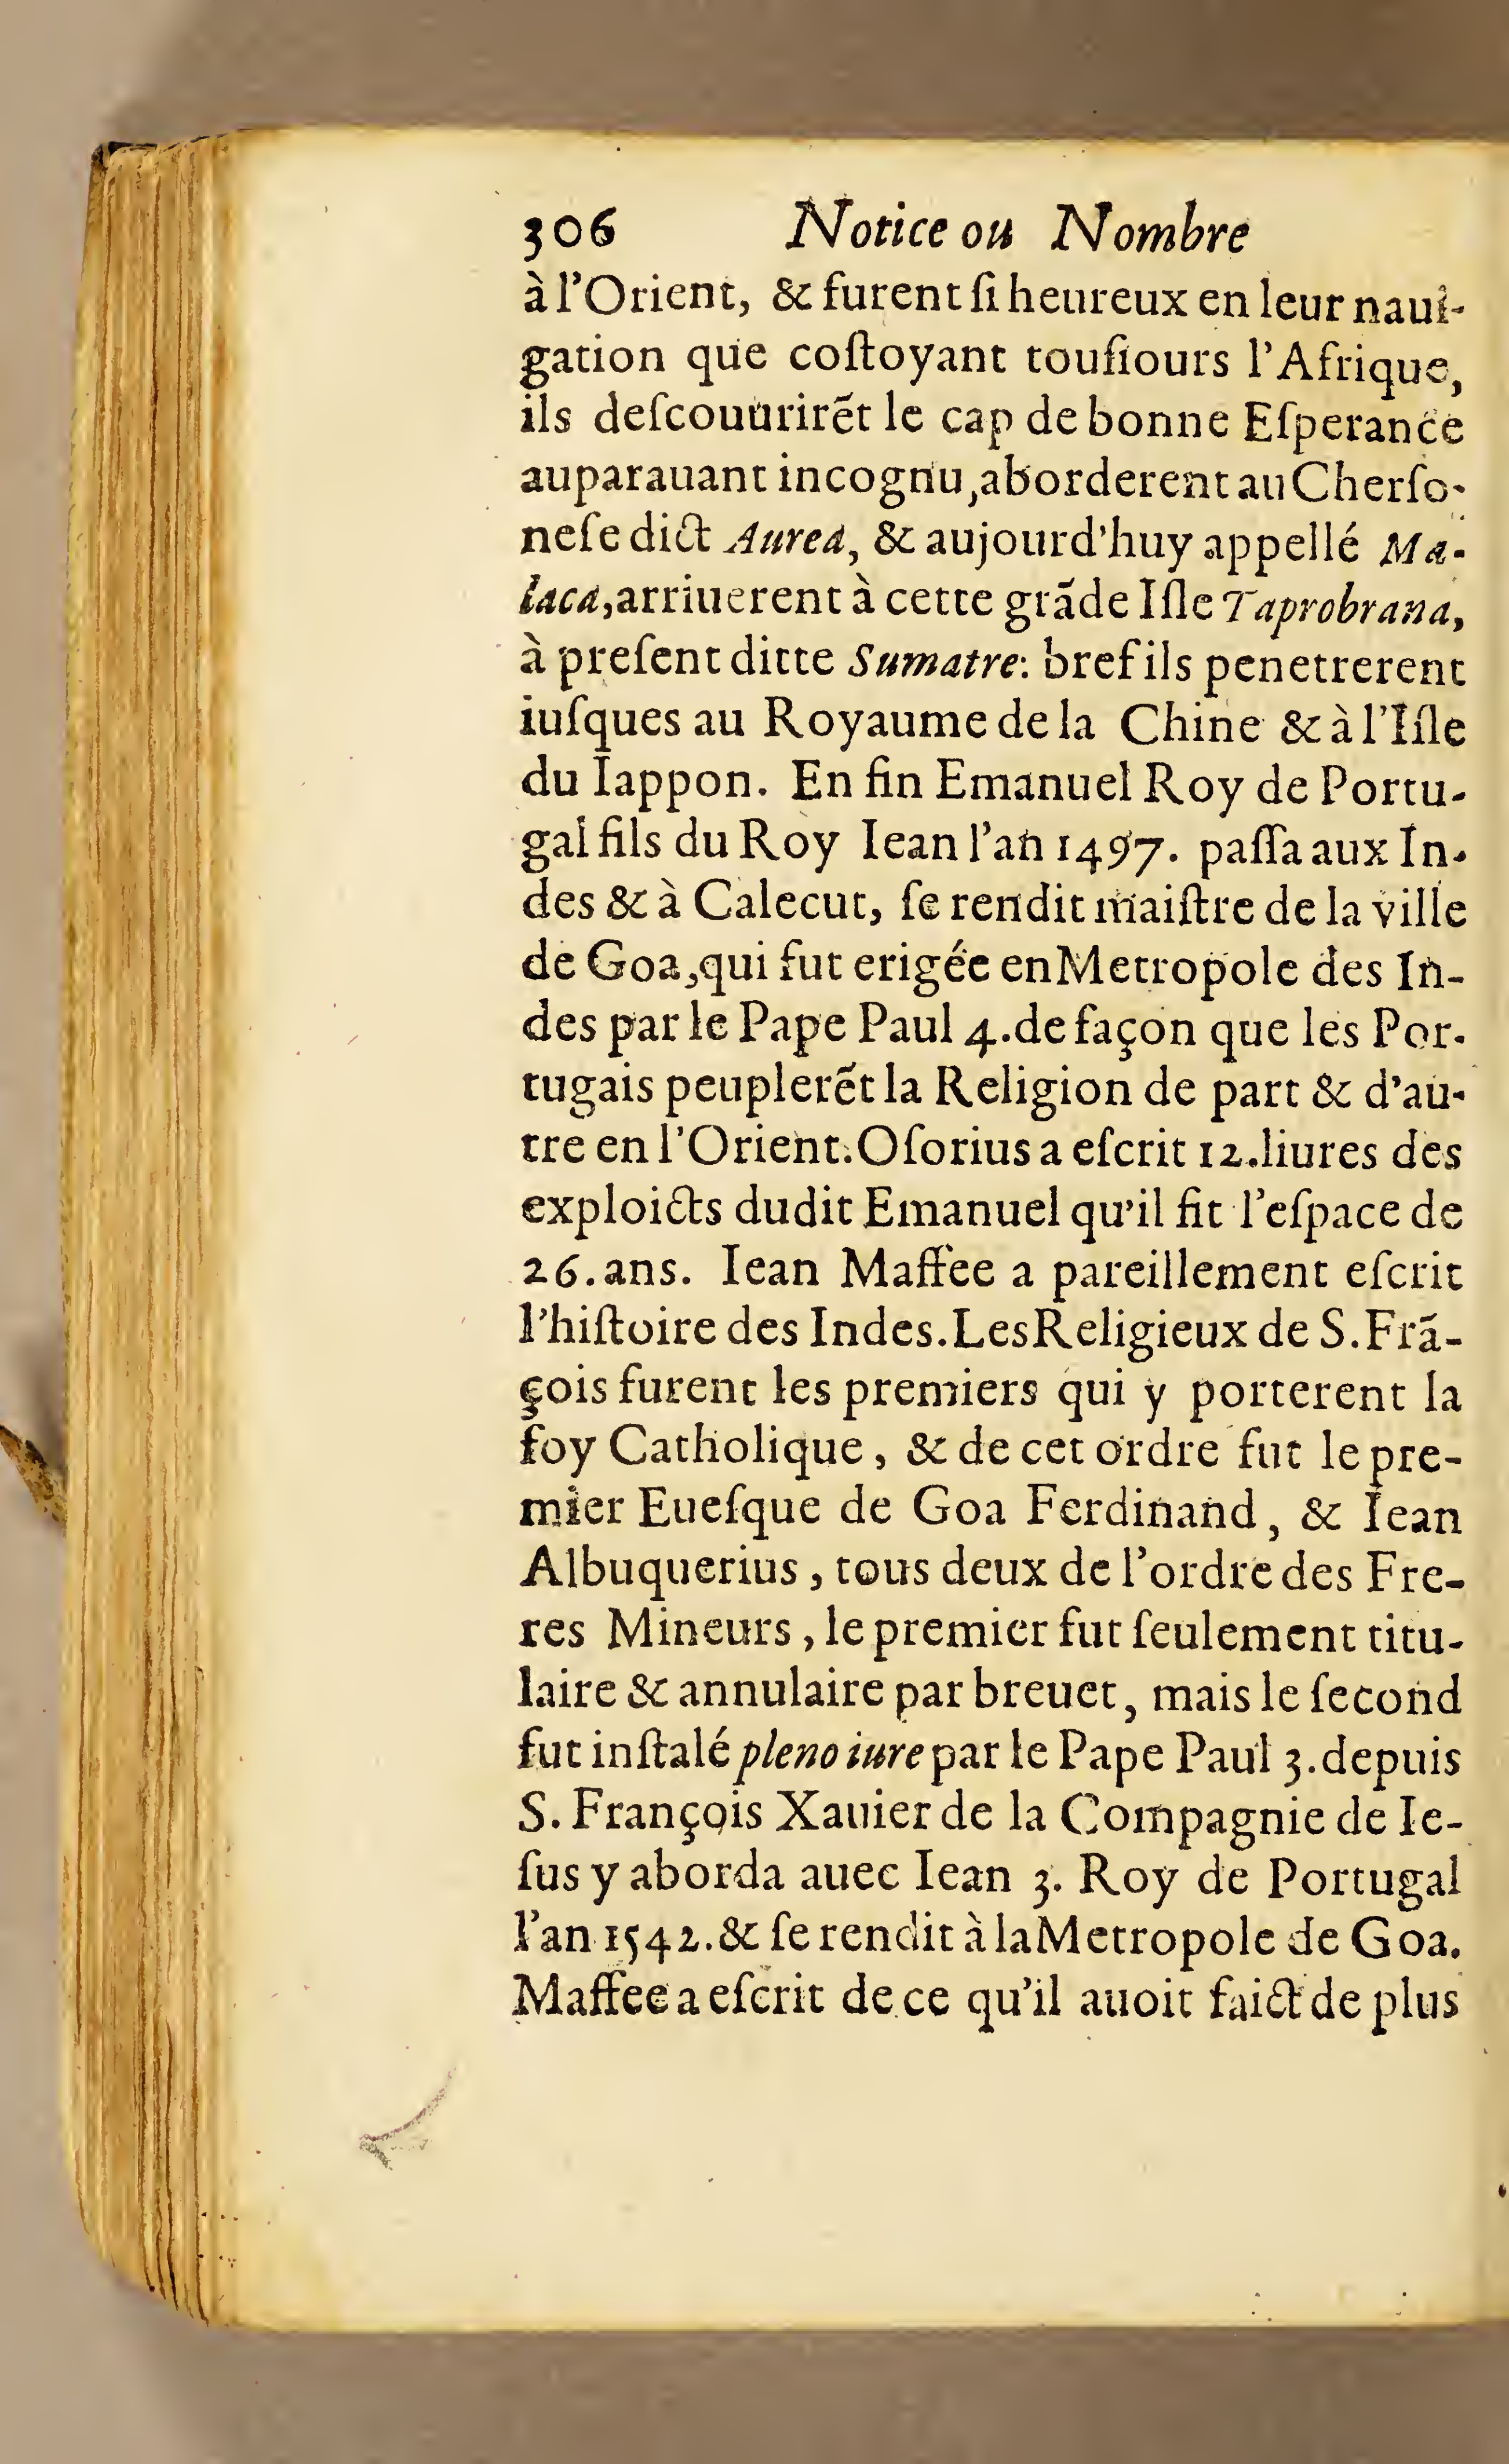 306 Notice ou Nombre
à l'Orient, & furent ſi heureux en leur naui-
gation que coſtoyant touſiours l'Afrique,
ils deſcouurirẽt le cap de bonne Eſperance
auparauant incognu, aborderent au Cherſo-
neſe dict Aurea, & aujourd'huy appellé Ma-
laca, arriuerent à cette grãde Iſle Taprobrana,
à preſent ditte Sumatre: bref ils penetrerent
iuſques au Royaume de la Chine & à l'Iſle
du Iappon. En fin Emanuel Roy de Portu-
gal fils du Roy Iean l'an 1497. paſſa aux In-
des & à Calecut, ſe rendit maiſtre de la ville
de Goa, qui fut erigée en Metropole des In-
des par le Pape Paul 4. de façon que les Por-
tugais peuplerẽt la Religion de part & d'au-
tre en l'Orient. Oſorius a eſcrit 12. liures des
exploicts dudit Emanuel qu'il fit l'eſpace de
26. ans. Iean Maffee a pareillement eſcrit
l'hiſtoire des Indes. Les Religieux de S. Frã-
çois furent les premiers qui y porterent la
foy Catholique, & de cet ordre fut le pre-
mier Eueſque de Goa Ferdinand, & Iean
Albuquerius, tous deux de l'ordre des Fre-
res Mineurs, le premier fut ſeulement titu-
laire & annulaire par breuet, mais le ſecond
fut inſtalé pleno iure par le Pape Paul 3. depuis
S. François Xauier de la Compagnie de Ie-
ſus y aborda auec Iean 3. Roy de Portugal
l'an 1542. & ſe rendit à la Metropole de Goa.
Maffee a eſcrit de ce qu'il auoit faict de plus